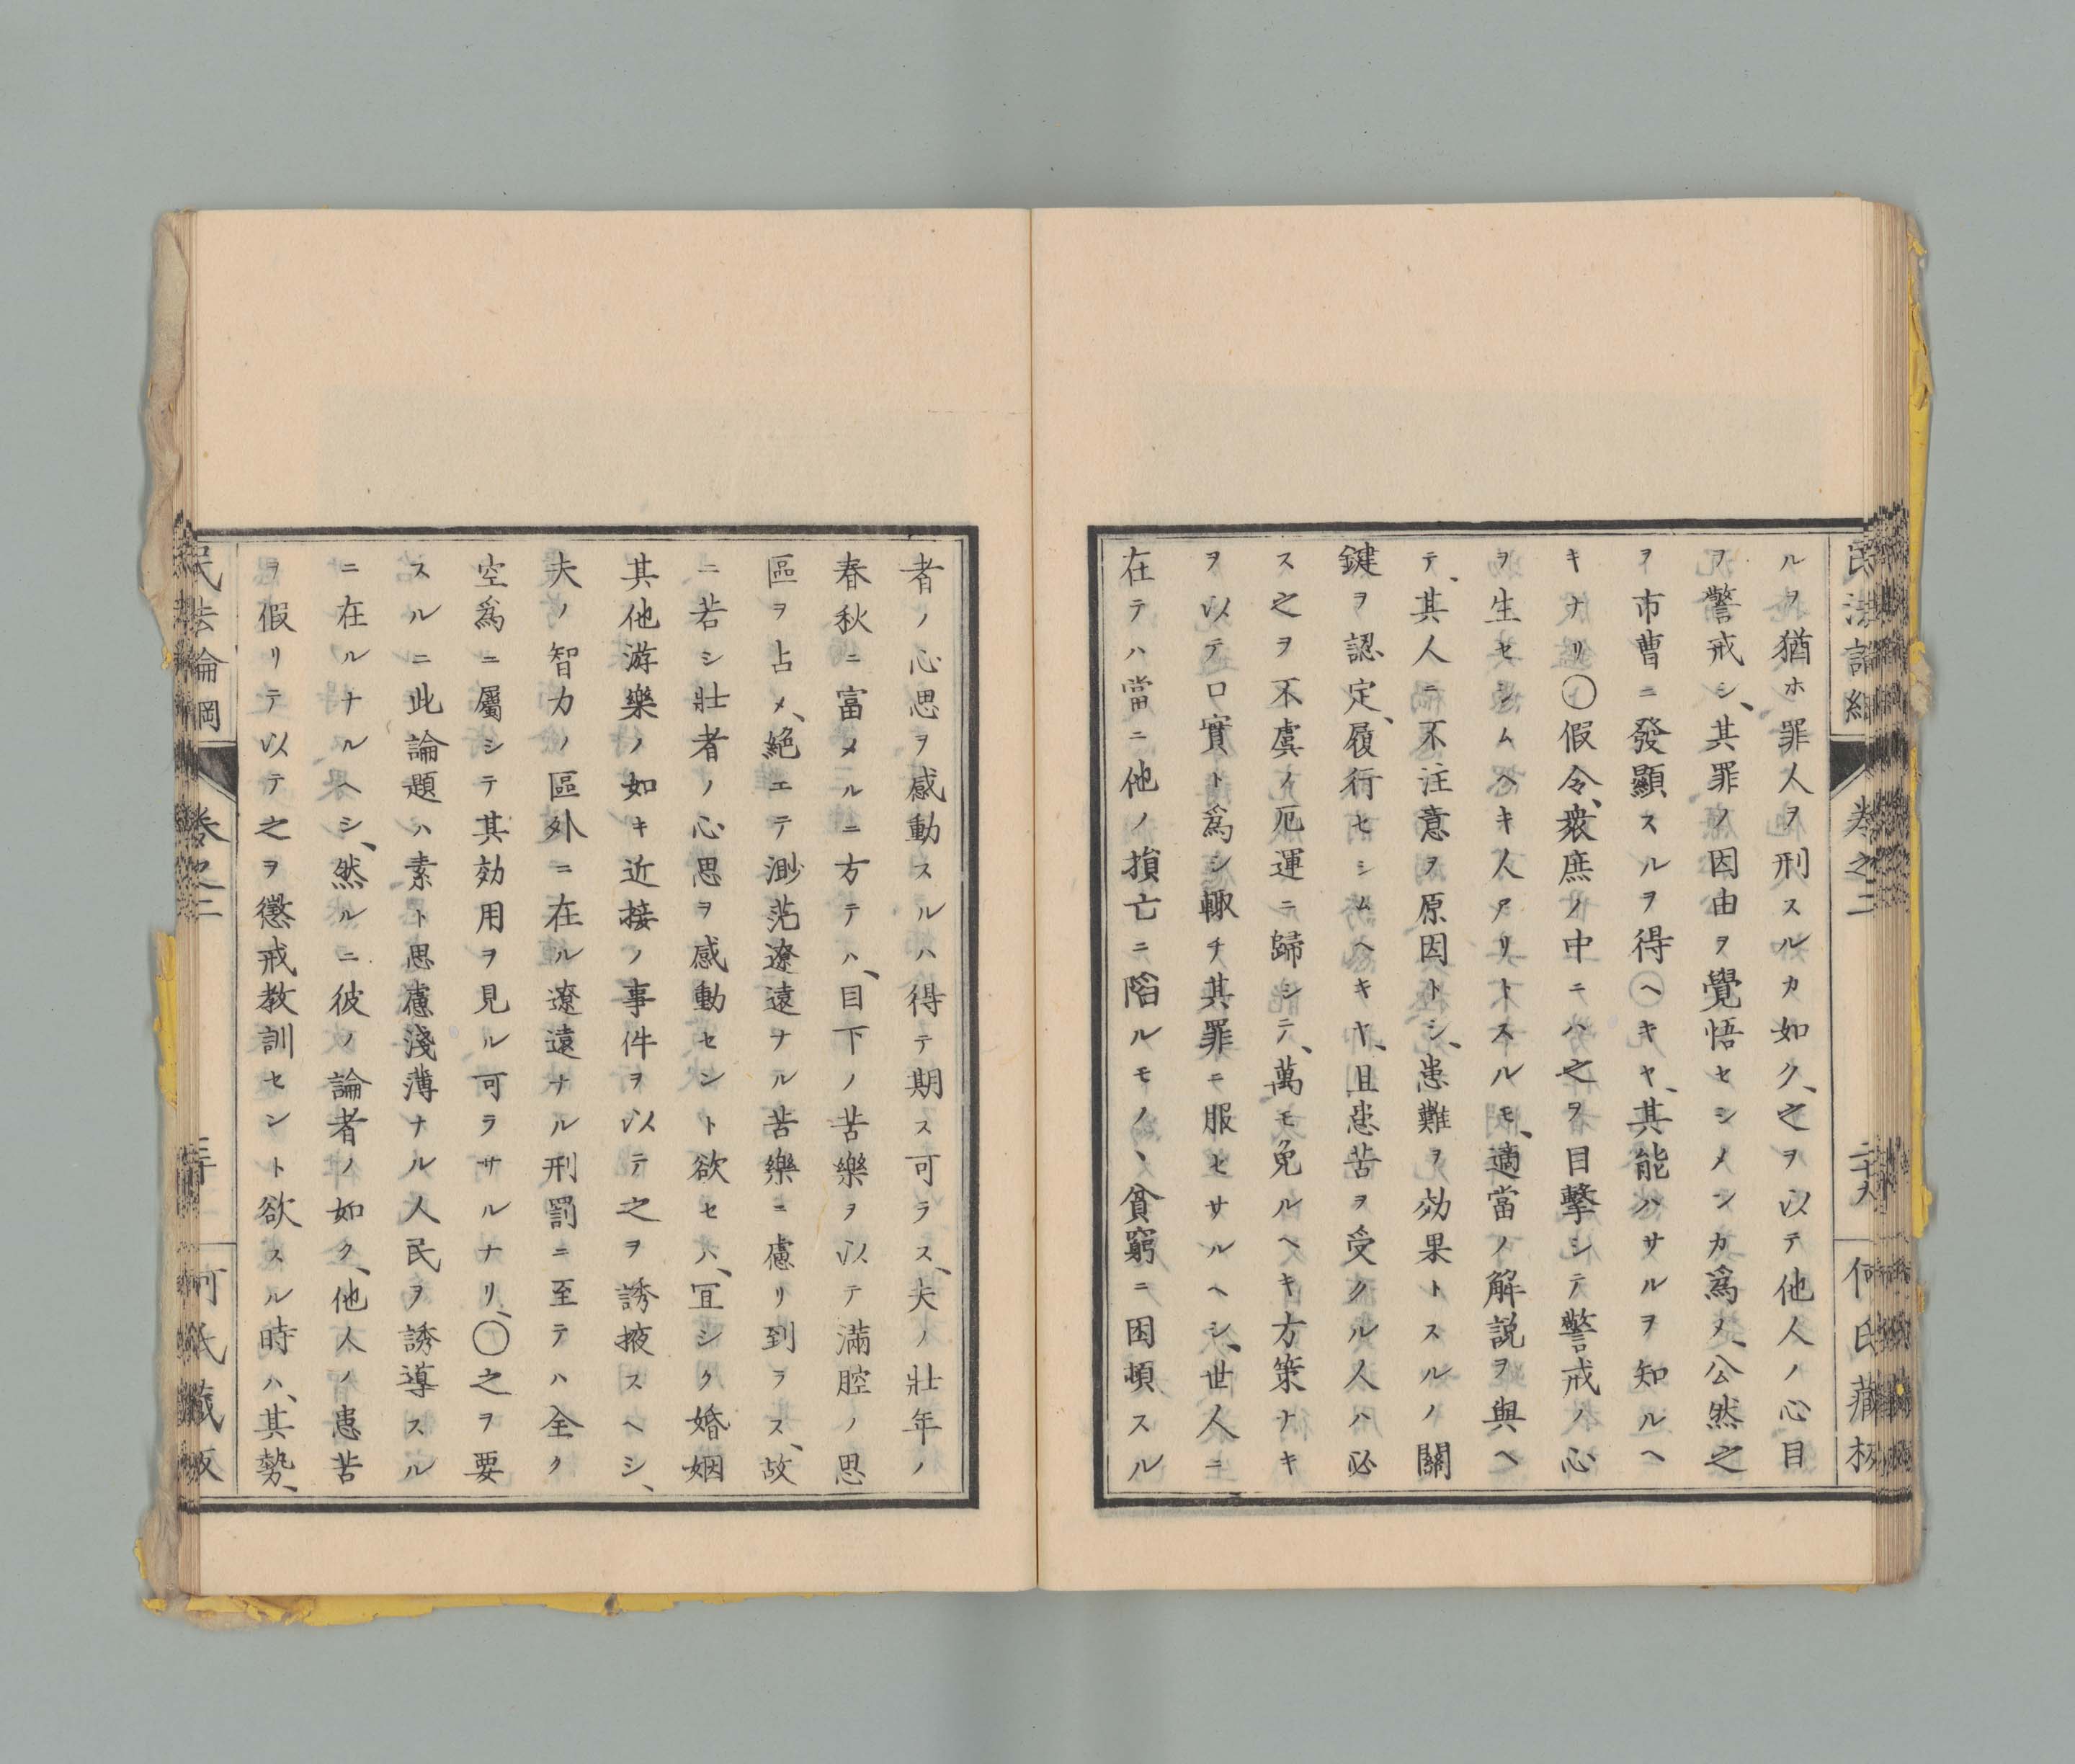 民法論綱 卷之二 二十九 何氏藏板
ルヲ猶ホ罪人ヲ刑スルカ如ク、之ヲ以テ他人ノ心目
ヲ警戒シ、其罪ノ因由ヲ覺悟セシメンカ爲メ、公然之
ヲ市曹ニ發顯スルヲ得ヘキヤ、其能ハサルヲ知ルヘ
キナリ○假令、衆庶ノ中ニハ之ヲ目擊シテ警戒ノ心
ヲ生セシムヘキ人アリトスルモ、適當ノ解説ヲ與ヘ
テ、其人ニ不注意ヲ原因トシ、患難ヲ効果トスルノ關
鍵ヲ認定、履行セシムヘキヤ、且患苦ヲ受クル人ハ必
ス之ヲ不虞ノ厄運ニ歸シテ、萬モ免ルヘキ方策ナキ
ヲ以テ口實ト爲シ輙チ其罪ニ服セサルヘシ、世人ニ
在テハ當ニ他ノ損亡ニ陷ルモノ、貧窮ニ困頓スル
者ノ心思ヲ感動スルハ得テ期ス可ラス、夫ノ壯年ノ
春秋ニ富メルニ方テハ、目下ノ苦樂ヲ以テ滿腔ノ思
區ヲ占メ、絕エテ渺茫遼遠ナル苦樂ニ慮リ到ラス、故
ニ若シ壯者ノ心思ヲ感動セント欲セハ、宜シク婚姻
其他游樂ノ如キ近接ノ事件ヲ以テ之ヲ誘掖スヘシ、
夫ノ智力ノ區外ニ在ル遼遠ナル刑罰ニ至テハ全ク
空爲ニ屬シテ其効用ヲ見ル可ラサルナリ、○之ヲ要
スルニ此論題ハ素ト思慮淺薄ナル人民ヲ誘導スル
ニ在ルナルヘシ、然ルニ彼ノ論者ノ如ク、他人ノ患苦
ヲ假リテ以テ之ヲ懲戒教訓セント欲スル時ハ、其勢、
民法論綱 卷之二 何氏藏板